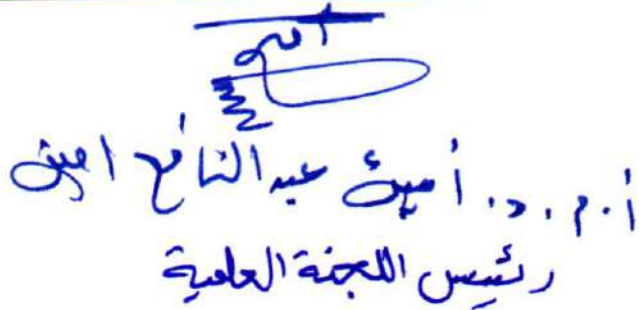 أ.م.د. أمين عبد النافع امين
رئيس اللجنة العلمية